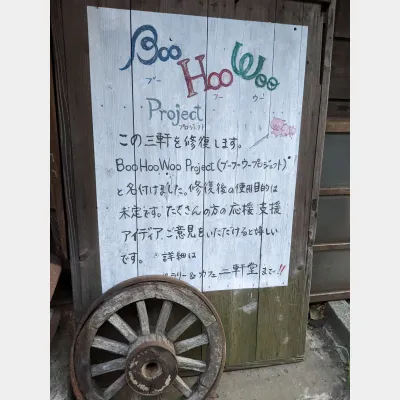 Boo
ブー
Hoo
フー
Woo
ウー
Project
プロジェクト
この三軒を修復します。
BooHooWoo Project(ブーフーウープロジェクト)
と名付けました。修復後の使用目的は
未定です。たくさんの方の応援 支援
アイディア、ご意見をいただけると嬉しい
です。 詳細は
ラリー&カフェ 二軒堂まで!!